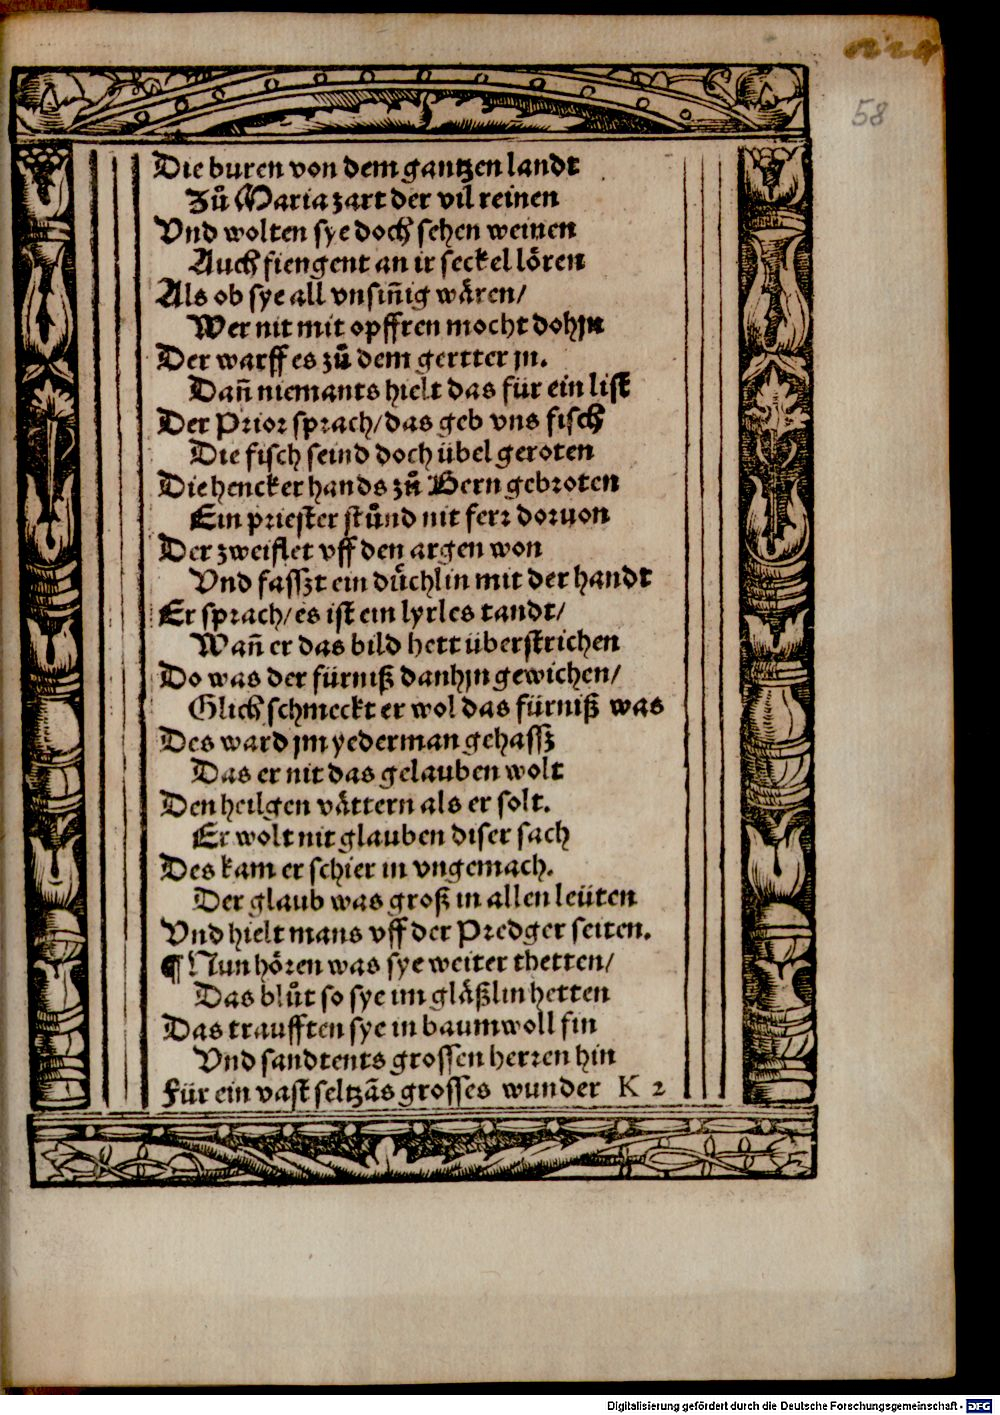 58
Die buren von dem gantzen landt
Zů Maria zart der vil reinen
Vnd wolten sye doch sehen weinen
Auch fiengent an ir seckel lören
Als ob sye all vnsiñig wären/
Wer nit mit opffren mocht dohjn
Der warff es zů dem gertter jn.
Dañ niemants hielt das für ein list
Der Prior sprach/das geb vns fisch
Die fisch seind doch übel geroten
Die hencker hands zů Bern gebroten
Ein priester stůnd nit ferr doruon
Der zweiflet vff den argen won
Vnd fasszt ein düchlin mit der handt
Er sprach/es ist ein lyrles tandt/
Wañ er das bild hett überstrichen
Do was der fürniß danhjn gewichen/
Glich schmeckt er wol das fürniß was
Des ward jm yederman gehassz
Das er nit das gelauben wolt
Den heilgen vättern als er solt.
Er wolt nit glauben diser sach
Des kam er schier in vngemach.
Der glaub was groß in allen leüten
Vnd hielt mans vff der Predger seiten.
¶ Nun hören was sye weiter thetten/
Das blůt so sye im gläßlin hetten
Das traufften sye in baumwoll fin
Vnd sandtents grossen herren hin
Für ein vast seltzãs grosses wunder K 2
Digitalisierung gefördert durch die Deutsche Forschungsgemeinschaft - DFG